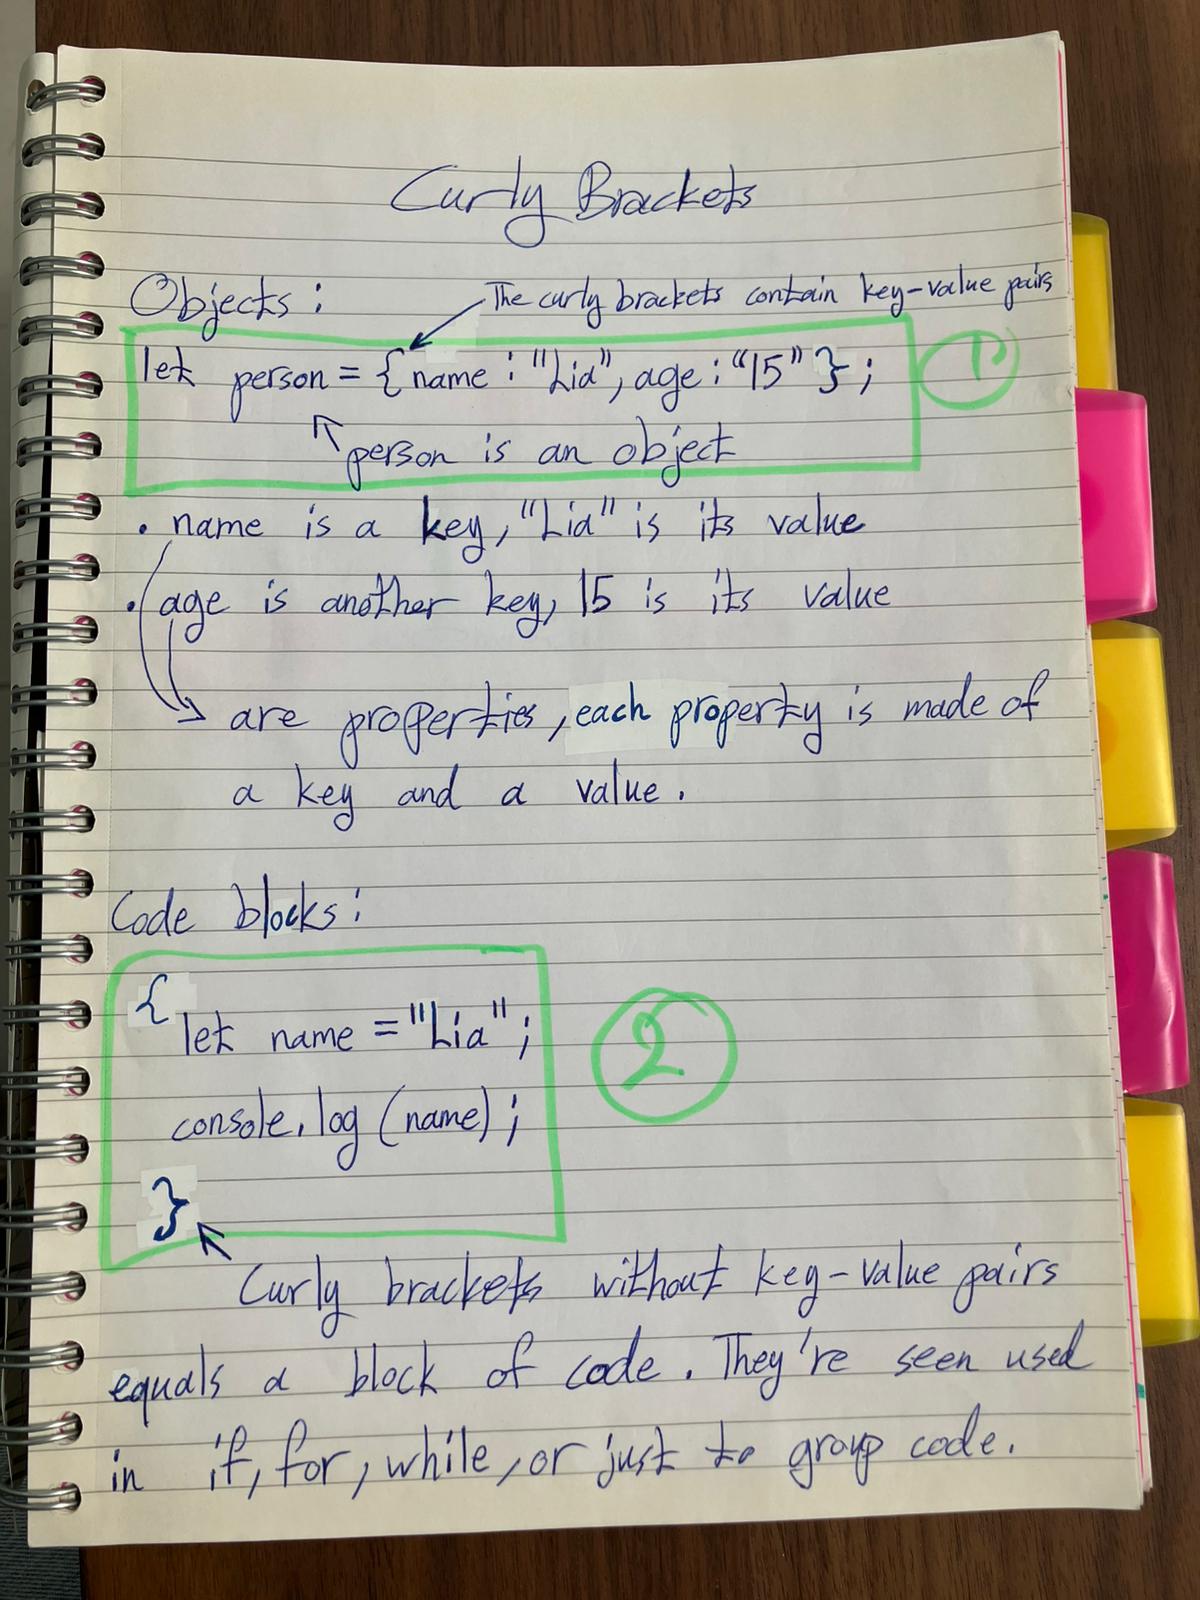 Curly Brackets
Objects:
The curly brackets contain key-value pairs
let person = { name : "Lia", age : "15" } ;
1
person is an object
. name is a key, "Lia" is its value
. age is another key, 15 is its value
are properties, each property is made of
a key and a value.
Code blocks:
{
let name = "Lia" ;
2
console.log (name) ;
}
Curly brackets without key-value pairs
equals a block of code. They're seen used
in if, for, while, or just to group code.